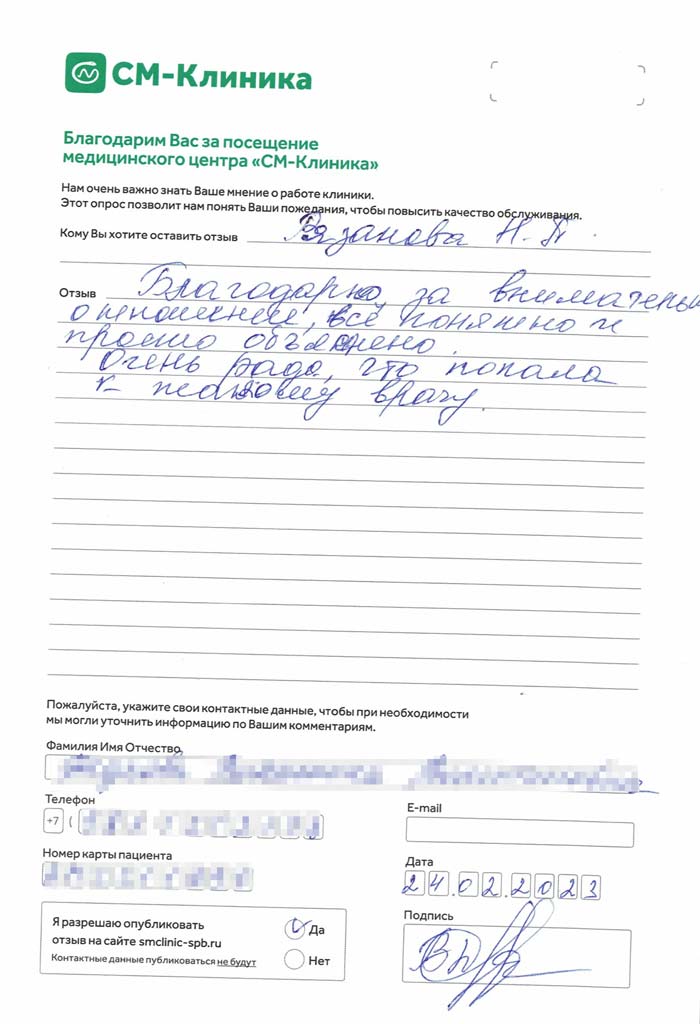 СМ-Клиника
Благодарим Вас за посещение
медицинского центра «СМ-Клиника»
Нам очень важно знать Ваше мнение о работе клиники.
Этот опрос позволит нам понять Ваши пожелания, чтобы повысить качество обслуживания.
Кому Вы хотите оставить отзыв Рязанова Н.П.
Отзыв Благодарю за внимательн
отношение, всё понятно и
просто объяснено.
Очень рада, что попала
к такому врачу.
Пожалуйста, укажите свои контактные данные, чтобы при необходимости
мы могли уточнить информацию по Вашим комментариям.
Фамилия Имя Отчество
Телефон
+7 (
E-mail
Номер карты пациента
Дата
24.02.2023
Я разрешаю опубликовать
отзыв на сайте smclinic-spb.ru
Контактные данные публиковаться не будут
Да
Нет
Подпись